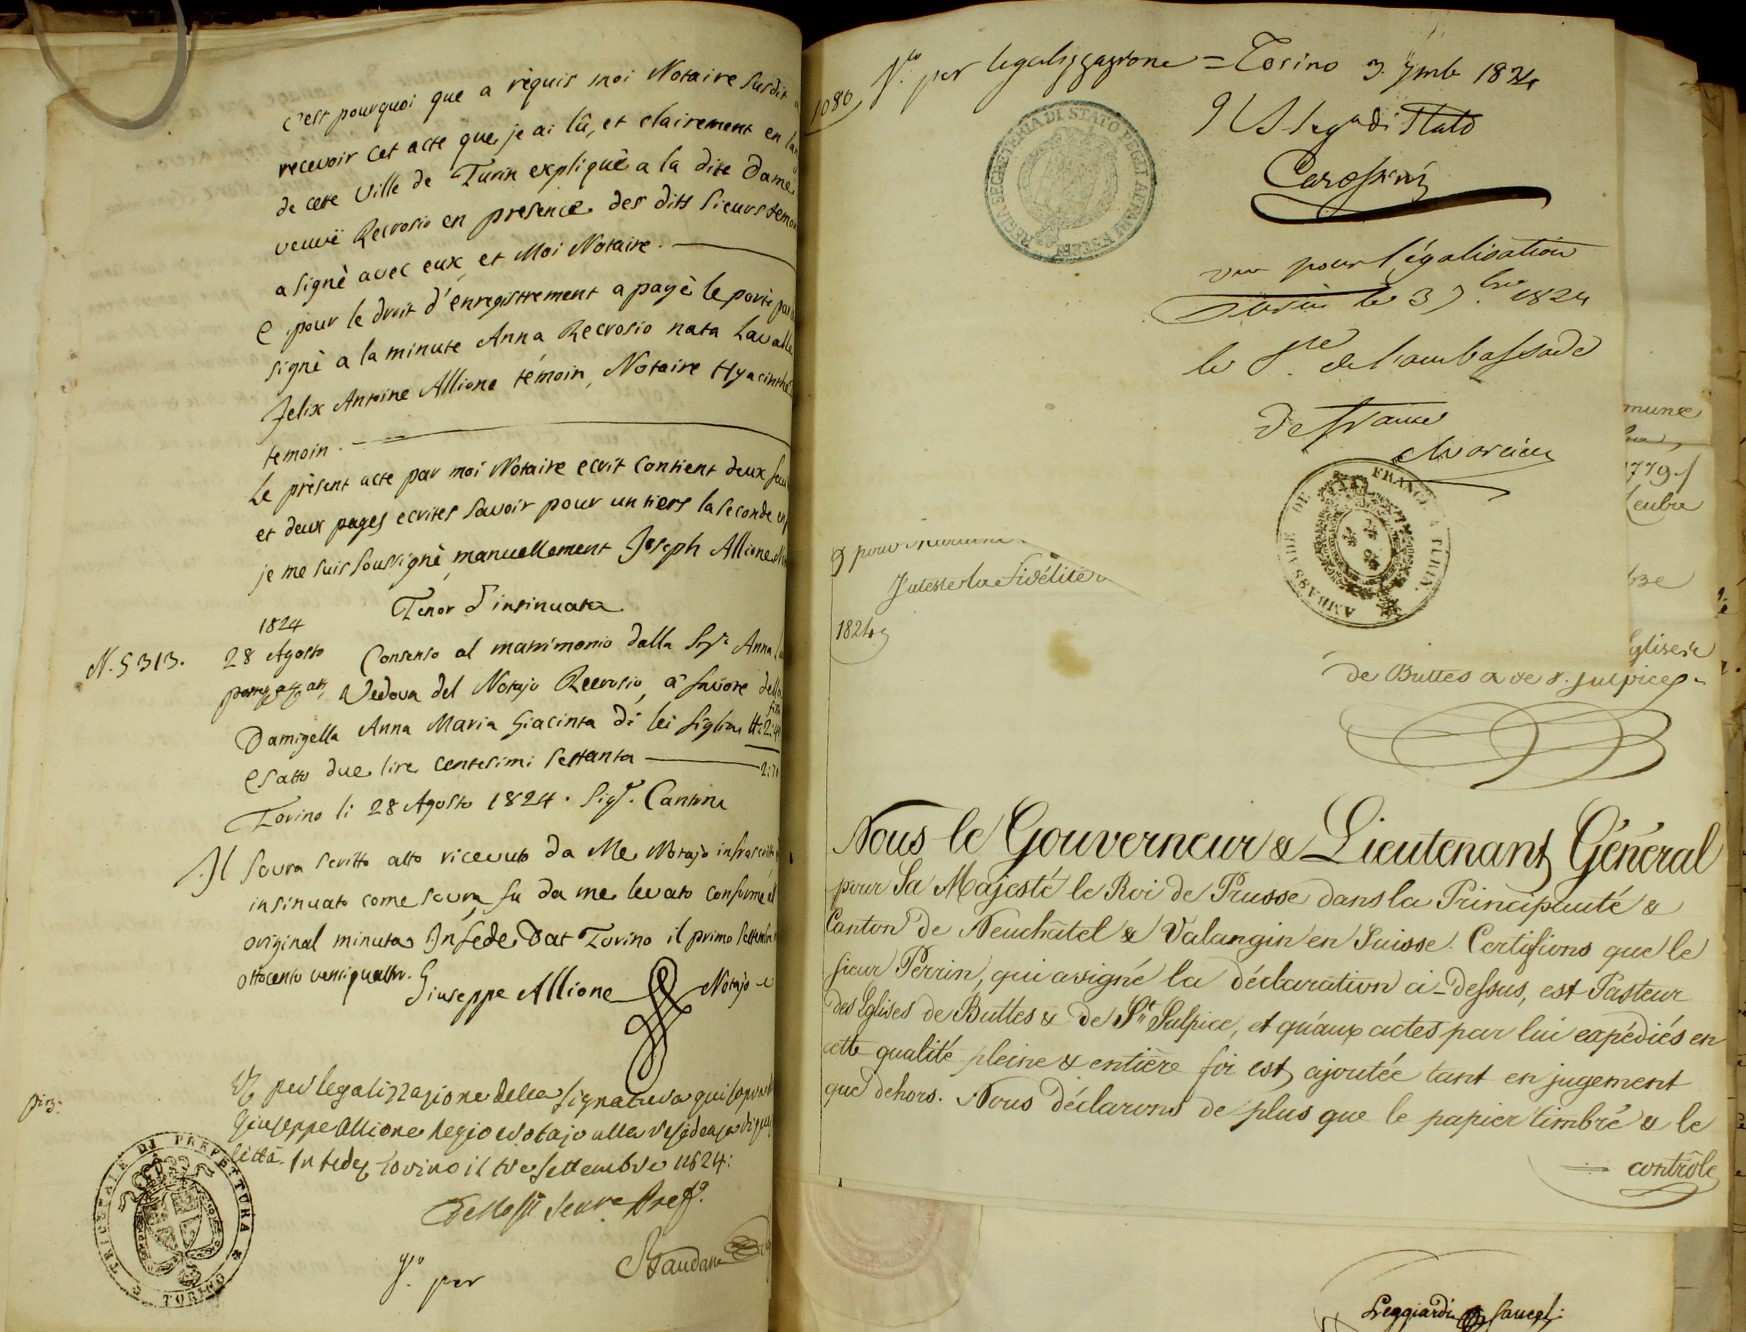 c'est pourquoi que a réquis moi Notaire susdit
recevoir cet acte que je ai lû, et clairement en
de cete Ville de Turin expliquè a la dite Dame
veuvë Recrosio en presence des dits sieurs temoi
a signè avec eux et Moi Notaire.
E pour le droit d'enregistrement a payè le portè
signè a la minute Anna Recrosio nata Lavall
Felix Antoine Allione témoin, Notaire Hyacinthe
temoin.
Le prèsent acte par moi Notaire ecrit contient deux
et deux pages ecrites savoir pour un tiers la seconde
je me suis soussignè manuellement Joseph Allione
Tenor d'insinuata
1824
N. 5313. 28 Agosto Consenso al matrimonio della Sig.ra Anna
Vedova del Notajo Recrosio, a favore della
Damigella Anna Maria Giacinta di lei figlia
Esatto due lire centesimi settanta
Torino li 28 Agosto 1824. Sig.t Cantina
Il sovra scritto atto ricevuto da Me Notajo infrascritto
insinuato come sovra, fu da me levato conforme al
original minuta In fede Dat Torino il primo settembre
ottocento ventiquattro.
Giuseppe Allione Notajo
per legalizzazione della signatura qui sopra
Giuseppe Allione Regio Notajo alla residenza di
città. In fede, Torino il tre settembre 1824:
Pref.
V.to per
TRIBUNALE DI PREFETTURA
TORINO
1080
V.to per legalizzazione = Torino 3. 7mbre 1824
di Stato
REGIA SEGRETERIA DI STATO PEGLI AFFARI ESTERI
vu pour légalisation
Turin le 3 7bre 1824
le S.re de l'ambassade
de france
AMBASSADE DE FRANCE A TURIN
& pour
J'atteste la fidélité
1824
mune
1779
Eglises
de Buttes & de S. Sulpice
Nous le Gouverneur & Lieutenant Général
pour Sa Majesté le Roi de Prusse dans la Principauté &
Canton de Neuchâtel & Valangin en Suisse. Certifions que le
sieur Perrin, qui a signé la déclaration ci-dessus, est Pasteur
des Eglises de Buttes & de St Sulpice, et qu'aux actes par lui expédiés en
cette qualité pleine & entière foi est ajoutée tant en jugement
que dehors. Nous déclarons de plus que le papier timbré & le
contrôle